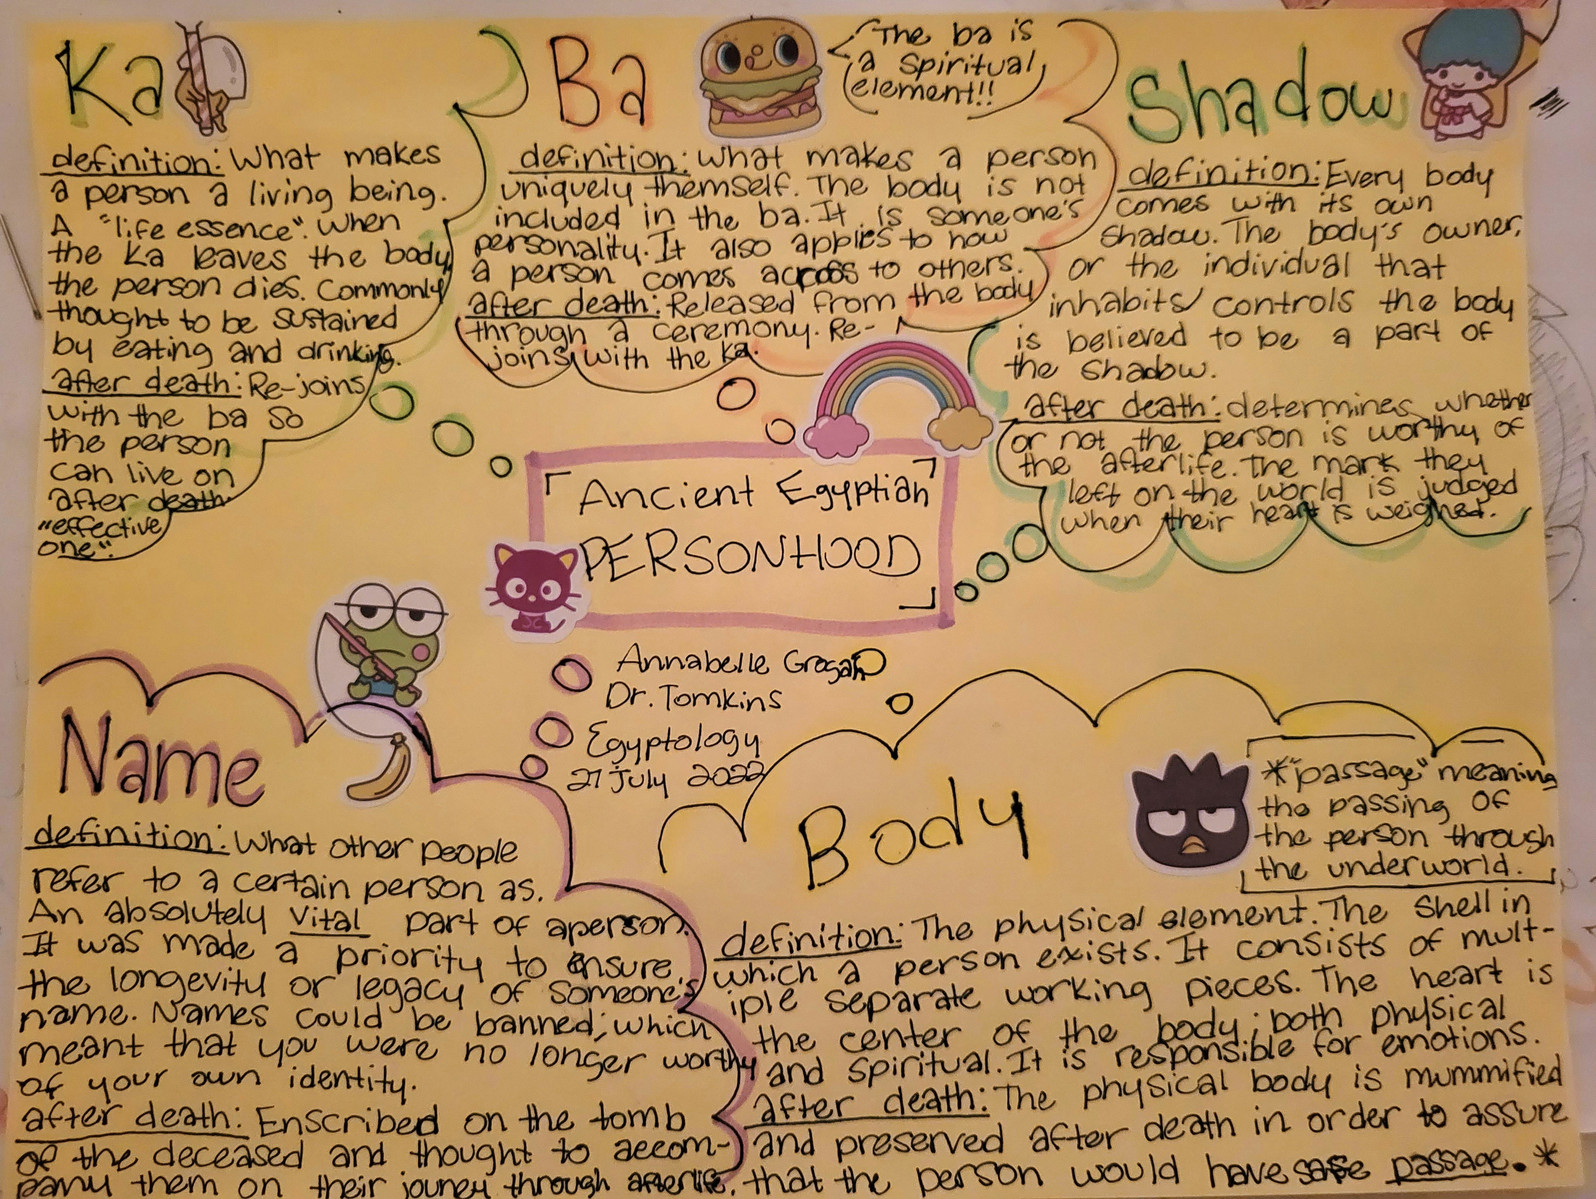 Ka
definition: What makes
a person a living being.
A "life essence". When
the Ka leaves the body
the person dies. Commonly
thought to be sustained
by eating and drinking.
after death: Re-joins
with the ba so
the person
can live on
after death.
"effective
one".
Ba
The ba is
a spiritual
element!!
definition: What makes a person
uniquely themself. The body is not
included in the ba. It is someone's
personality. It also applies to how
a person comes across to others.
after death: Released from the body
through a ceremony. Re-
joins with the ka.
Shadow
definition: Every body
comes with its own
shadow. The body's owner,
or the individual that
inhabits/controls the body
is believed to be a part of
the shadow.
after death: determines whether
or not the person is worthy of
the afterlife. The mark they
left on the world is judged
when their heart is weighed.
Ancient Egyptian
PERSONHOOD
Annabelle Grogan
Dr. Tomkins
Egyptology
27 July 2022
Name
definition: What other people
refer to a certain person as.
An absolutely vital part of a person.
It was made a priority to ensure
the longevity or legacy of someone's
name. Names could be banned; which
meant that you were no longer worthy
of your own identity.
after death: Enscribed on the tomb
of the deceased and thought to accom-
pany them on their jouney through afterlife.
Body
*"passage" meaning
the passing of
the person through
the underworld.
definition: The physical element. The shell in
which a person exists. It consists of mult-
iple separate working pieces. The heart is
the center of the body; both physical
and spiritual. It is responsible for emotions.
after death: The physical body is mummified
and preserved after death in order to assure
that the person would have safe passage. *